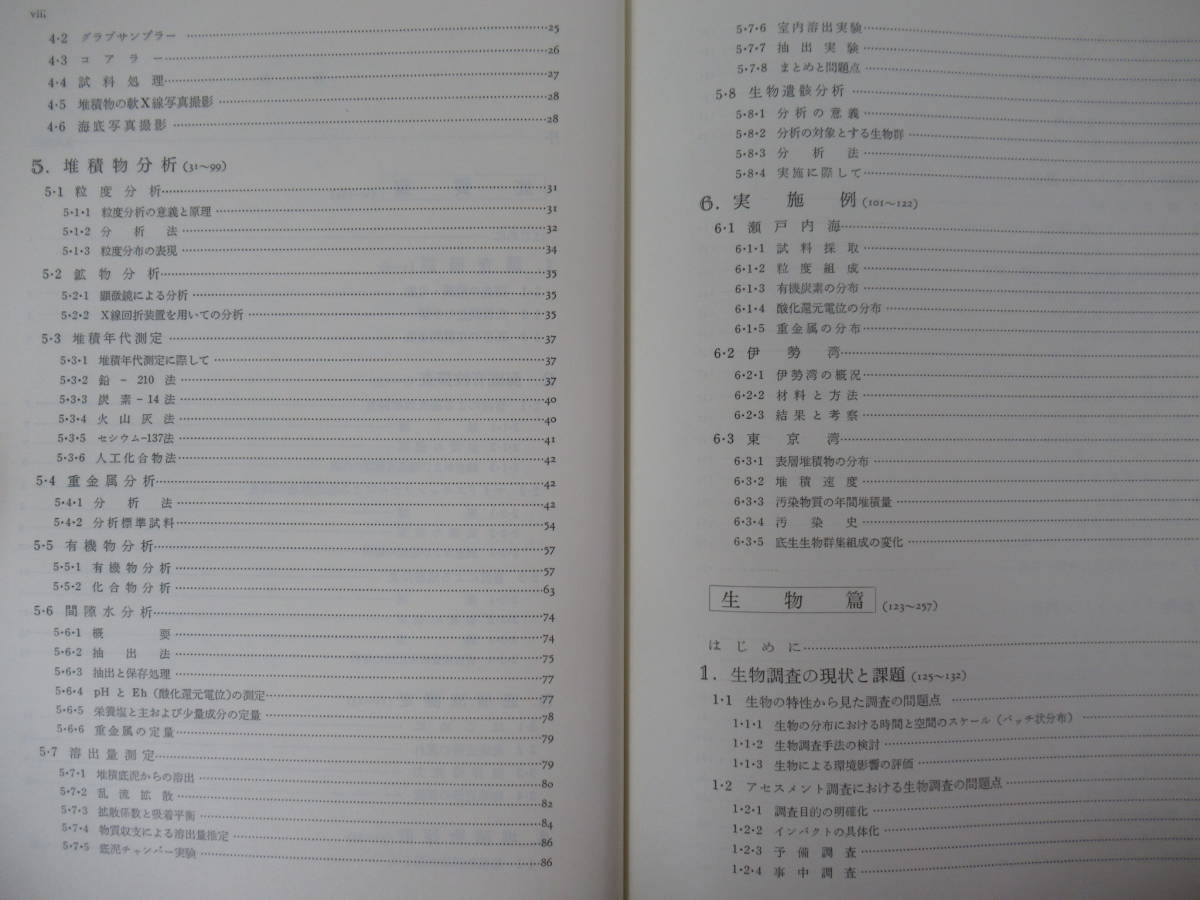 viii
4・2 グラブサンプラー……25
4・3 コアラー……26
4・4 試料処理……27
4・5 堆積物の軟X線写真撮影……28
4・6 海底写真撮影……28
5. 堆積物分析 (31〜99)
5・1 粒度分析……31
5・1・1 粒度分析の意義と原理……31
5・1・2 分析法……32
5・1・3 粒度分布の表現……34
5・2 鉱物分析……35
5・2・1 顕微鏡による分析……35
5・2・2 X線回折装置を用いての分析……35
5・3 堆積年代測定……37
5・3・1 堆積年代測定に際して……37
5・3・2 鉛-210法……37
5・3・3 炭素-14法……40
5・3・4 火山灰法……40
5・3・5 セシウム-137法……41
5・3・6 人工化合物法……42
5・4 重金属分析……42
5・4・1 分析法……42
5・4・2 分析標準試料……54
5・5 有機物分析……57
5・5・1 有機物分析……57
5・5・2 化合物分析……63
5・6 間隙水分析……74
5・6・1 概要……74
5・6・2 抽出法……75
5・6・3 抽出と保存処理……77
5・6・4 pHとEh(酸化還元電位)の測定……77
5・6・5 栄養塩と主および少量成分の定量……78
5・6・6 重金属の定量……79
5・7 溶出量測定……79
5・7・1 堆積底泥からの溶出……80
5・7・2 乱流拡散……82
5・7・3 拡散係数と吸着平衡……84
5・7・4 物質収支による溶出量推定……86
5・7・5 底泥チャンバー実験……86
5・7・6 室内溶出実験……
5・7・7 抽出実験……
5・7・8 まとめと問題点……
5・8 生物遺骸分析……
5・8・1 分析の意義……
5・8・2 分析の対象とする生物群……
5・8・3 分析法……
5・8・4 実施に際して……
6. 実施例 (101〜122)
6・1 瀬戸内海……
6・1・1 試料採取……
6・1・2 粒度組成……
6・1・3 有機炭素の分布……
6・1・4 酸化還元電位の分布……
6・1・5 重金属の分布……
6・2 伊勢湾……
6・2・1 伊勢湾の概況……
6・2・2 材料と方法……
6・2・3 結果と考察……
6・3 東京湾……
6・3・1 表層堆積物の分布……
6・3・2 堆積速度……
6・3・3 汚染物質の年間堆積量……
6・3・4 汚染史……
6・3・5 底生生物群集組成の変化……
生物篇 (123〜257)
はじめに……
1. 生物調査の現状と課題 (125〜132)
1・1 生物の特性から見た調査の問題点……
1・1・1 生物の分布における時間と空間のスケール(パッチ状分布)……
1・1・2 生物調査手法の検討……
1・1・3 生物による環境影響の評価……
1・2 アセスメント調査における生物調査の問題点……
1・2・1 調査目的の明確化……
1・2・2 インパクトの具体化……
1・2・3 予備調査……
1・2・4 事中調査……